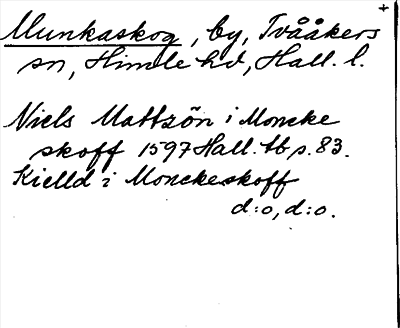 +
Munkaskog, by, Tvååkers
sn, Himle hd, Hall. l.
Niels Mattzön i Moncke
skoff 1597 Hall. tb s. 83.
Kielld i Monckeskoff
d:o, d:o.